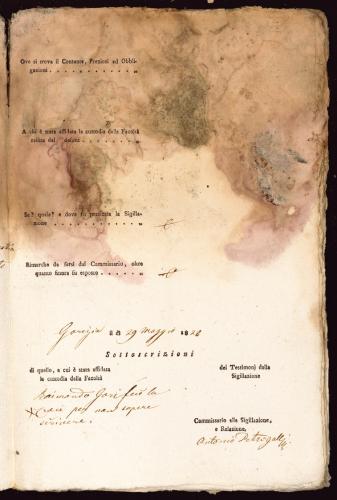 Ove si trova il Contante, Preziosi ed Obbli-
gazioni . . . . . . . . . . . „
A chi è stata affidata la custodia della Facoltà
relitta del defunto . . . . . . . . „
Se? quale? e dove fu praticata la Sigilla-
zione . . . . . . . . . . . „
Rimarche da farsi dal Commissario, oltre
quanto finora fu esposto . . . . . . „
Gorizia li 29 Maggio 1828
Sottoscrizioni
di quello, a cui è stata affidata
la custodia della Facoltà
dei Testimonj della
Sigillazione
Raimondo fece la
Croce per non sapere
scrivere.
Commissario alla Sigillazione,
e Relazione.
Antonio